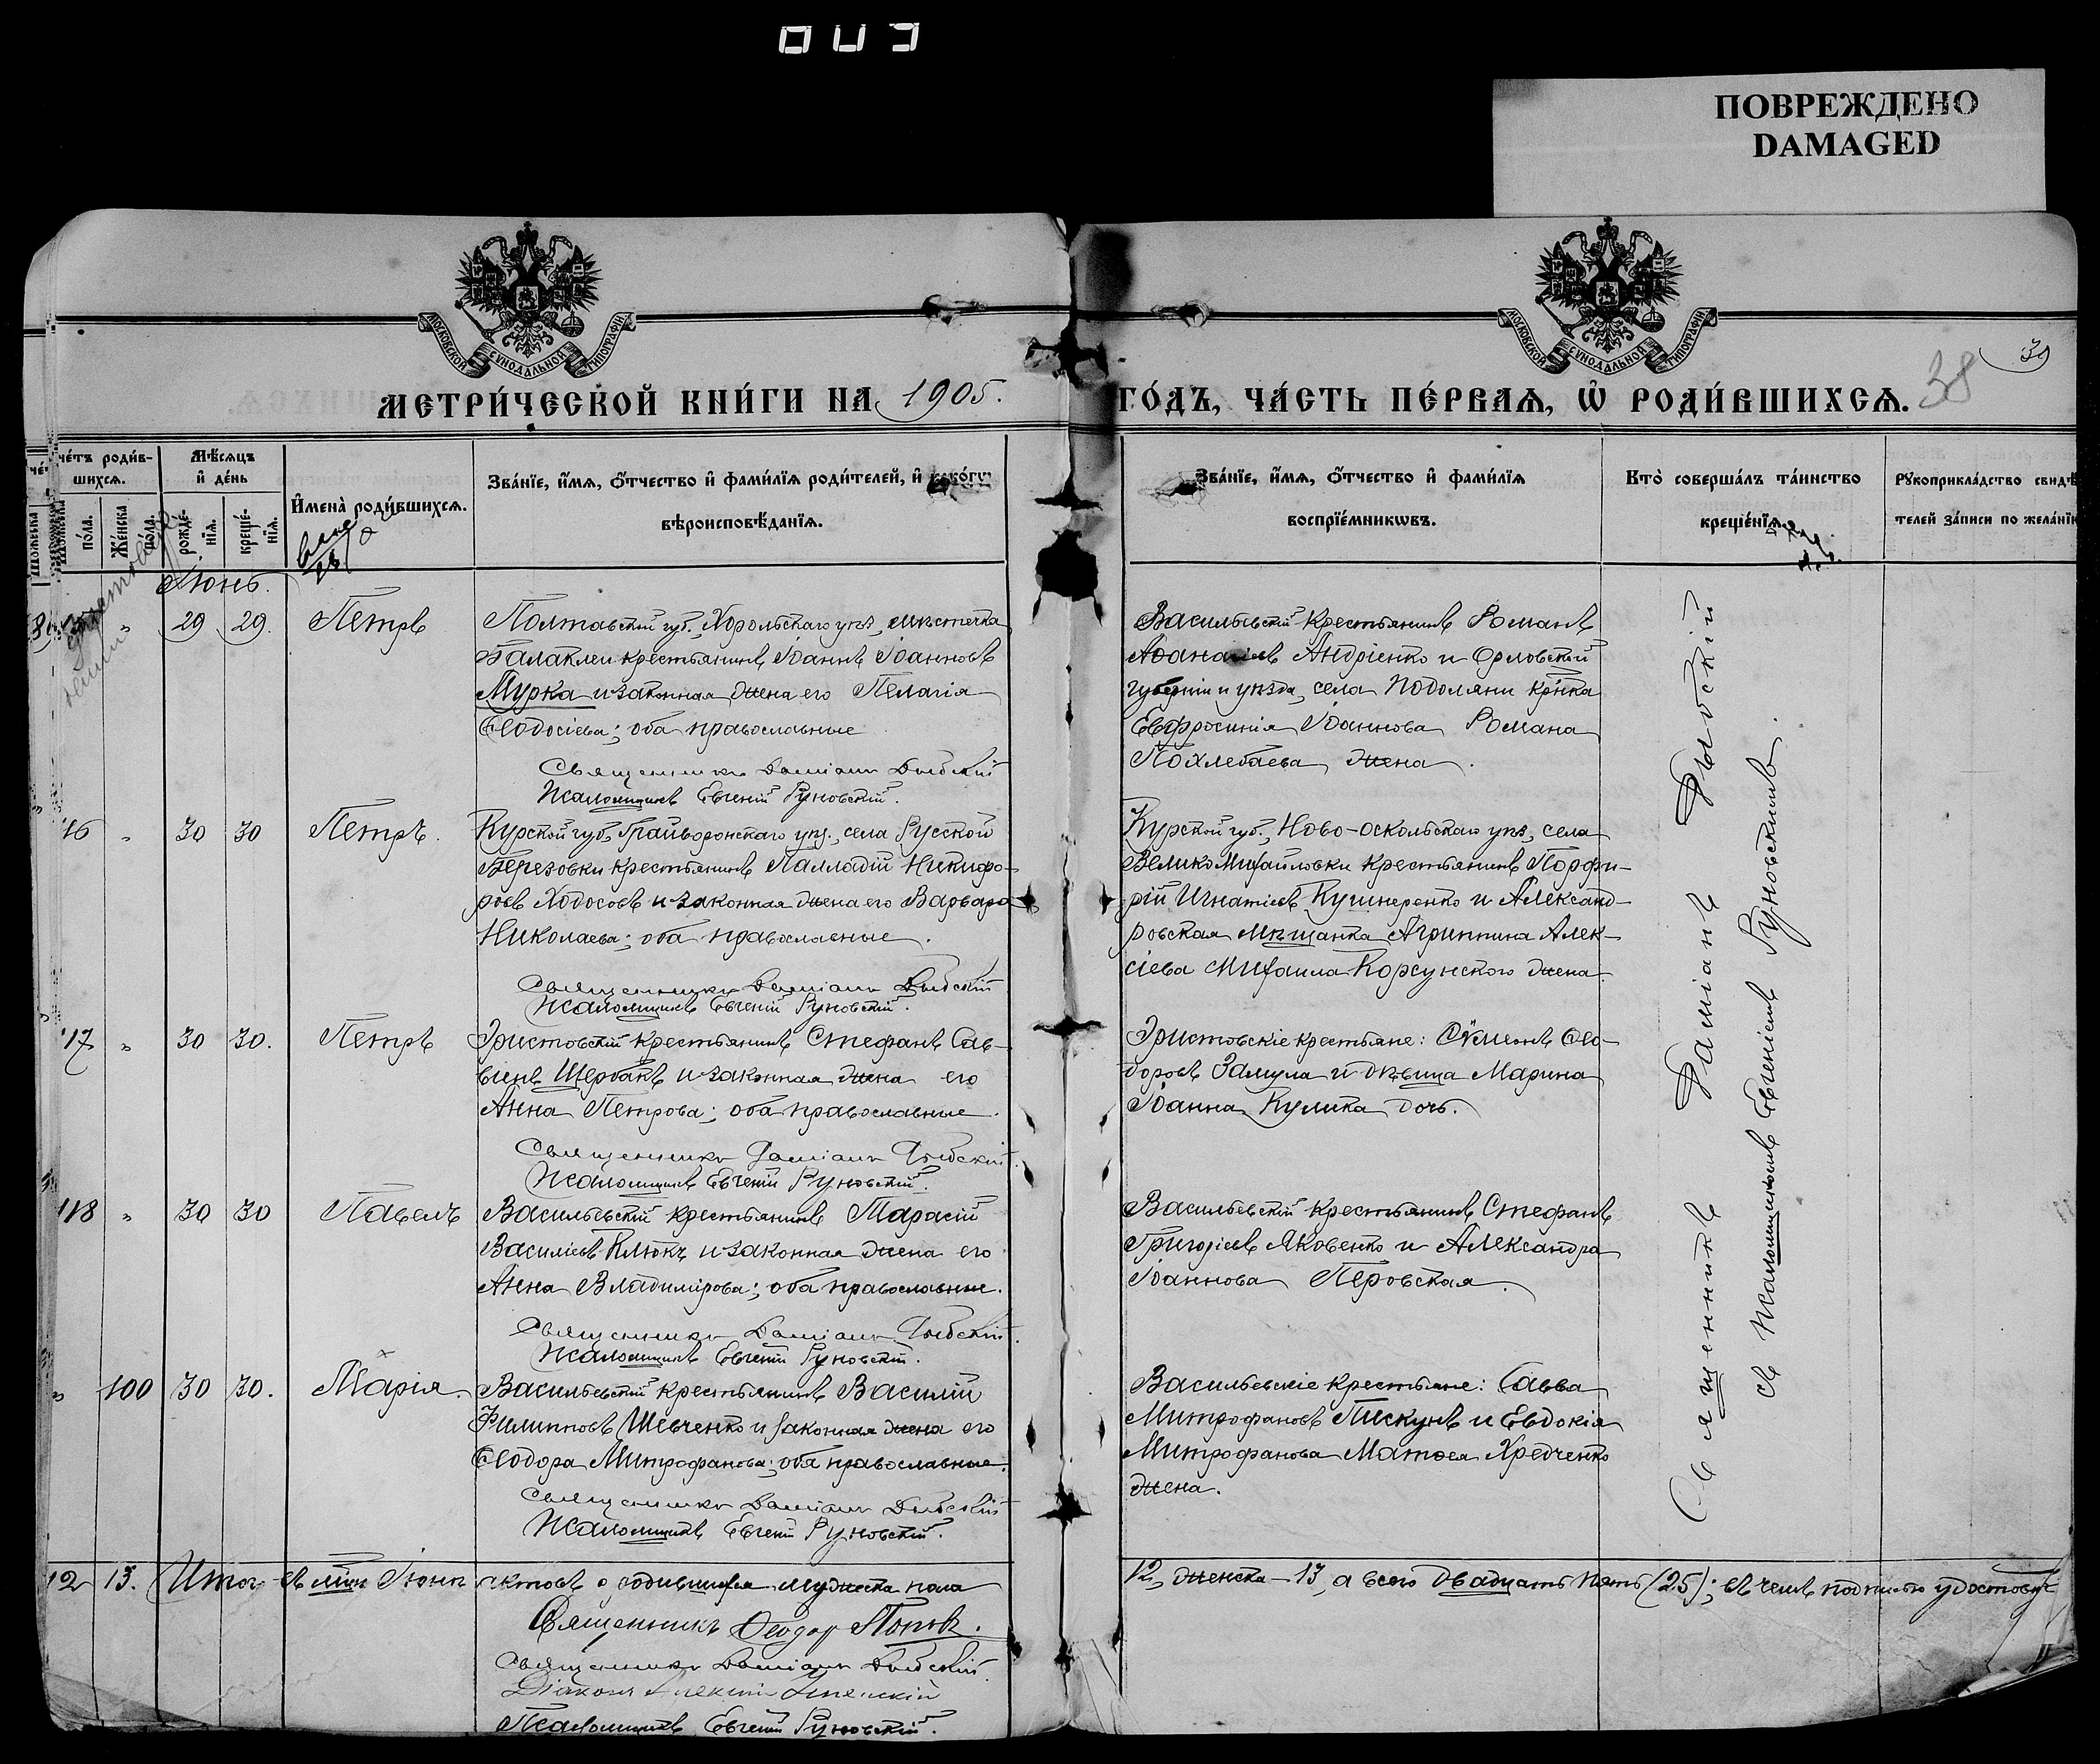 003
ПОВРЕЖДЕНО
DAMAGED
МОСКОВСКОЙ СѴНОДАЛЬНОЙ ТИПОГРАФІИ
МОСКОВСКОЙ СѴНОДАЛЬНОЙ ТИПОГРАФІИ
39
38
МЕТРИ́ЧЕСКОЙ КНИ́ГИ НА 1905.
ГО́ДЪ, ЧА́СТЬ ПЕ́РВАѦ, Ѿ РОДИ́ВШИХСѦ.
че́тъ роди́в-
шихсѧ.
Мѣ́сѧцъ
и҆ де́нь
пола.
Же́нска
пола.
рожде́-
нїѧ.
креще́-
нїѧ.
И҆мена̀ роди́вшихсѧ.
Зва́нїе, и҆́мѧ, ѻ҆́тчество и҆ фами́лїѧ роди́телей, и҆ како́гѡ
вѣроисповѣ́данїѧ.
Зва́нїе, и҆́мѧ, ѻ҆́тчество и҆ фами́лїѧ
воспрїе́мникѡвъ.
Кто̀ соверша́лъ та́инство
креще́нїѧ.
Рꙋкоприкла́дство свидѣ́
телей за́писи по жела́нїю
Іюнь.
" 29 29. Петръ
Полтавской губ., Хорольскаго уѣз., мѣстечка
Балаклеи крестьянинъ Іоаннъ Іоанновъ
Мурка и законная жена его Пелагія
Ѳеодосіева; оба православные
Священникъ Даміанъ Дыбскій
Псаломщикъ Евгеній Руновскій.
Васильевскій крестьянинъ Романъ
Аѳанасіевъ Андріенко и Орловской
губерніи и уѣзда, села Подоляни кр-нка
Евфросинія Іоаннова Романа
Похлебаева жена.
" 30 30 Петръ.
Курской губ., Грайворонскаго уѣз., села Русской
Березовки крестьянинъ Палладій Никифо-
ровъ Ходосовъ и законная жена его Варвара
Николаева; оба православные.
Священникъ Даміанъ Дыбскій
Псаломщикъ Евгеній Руновскій.
Курской губ., Ново-оскольскаго уѣз., села
Велико Михайловки крестьянинъ Порфи-
рій Игнатіевъ Кушнеренко и Александ-
ровская мѣщанка Агриппина Алек-
сіева Михаила Корсунского жена.
" 30 30. Петръ
Эристовскій крестьянинъ Стефанъ Сав-
винъ Щербакъ и законная жена его
Анна Петрова; оба православные.
Священникъ Даміанъ Дыбскій
Псаломщикъ Евгеній Руновскій.
Эристовскіе крестьяне: Сѵмеонъ Ѳео-
доровъ Замула и дѣвица Марина
Іоанна Кулика дочь.
118 " 30 30 Павелъ
Васильевскій крестьянинъ Тарасій
Василіевъ Клюкъ и законная жена его
Анна Владимірова; оба православные.
Священникъ Даміанъ Дыбскій.
Псаломщикъ Евгеній Руновскій.
Васильевскій крестьянинъ Стефанъ
Григоріевъ Яковенко и Александра
Іоаннова Перовская.
" 100 30 30. Марія.
Васильевскій крестьянинъ Василій
Филипповъ Шевченко и законная жена его
Ѳеодора Митрофанова; оба православные.
Священникъ Даміанъ Дыбскій
Псаломщикъ Евгеній Руновскій.
Васильевскіе крестьяне: Савва
Митрофановъ Пискунъ и Евдокія
Митрофанова Матѳея Хредченко
жена.
Священникъ Даміанъ Дыбскій
съ Псаломщикомъ Евгеніемъ Руновскимъ.
12 13. Итого въ м-цѣ Іюнѣ актовъ о родившихся мужеска пола
12, женска - 13, а всего двадцать пять (25); въ чемъ подписью удостовѣр
Священникъ Ѳеодоръ Поповъ.
Священникъ Даміанъ Дыбскій
Діаконъ
Псаломщикъ Евгеній Руновскій.